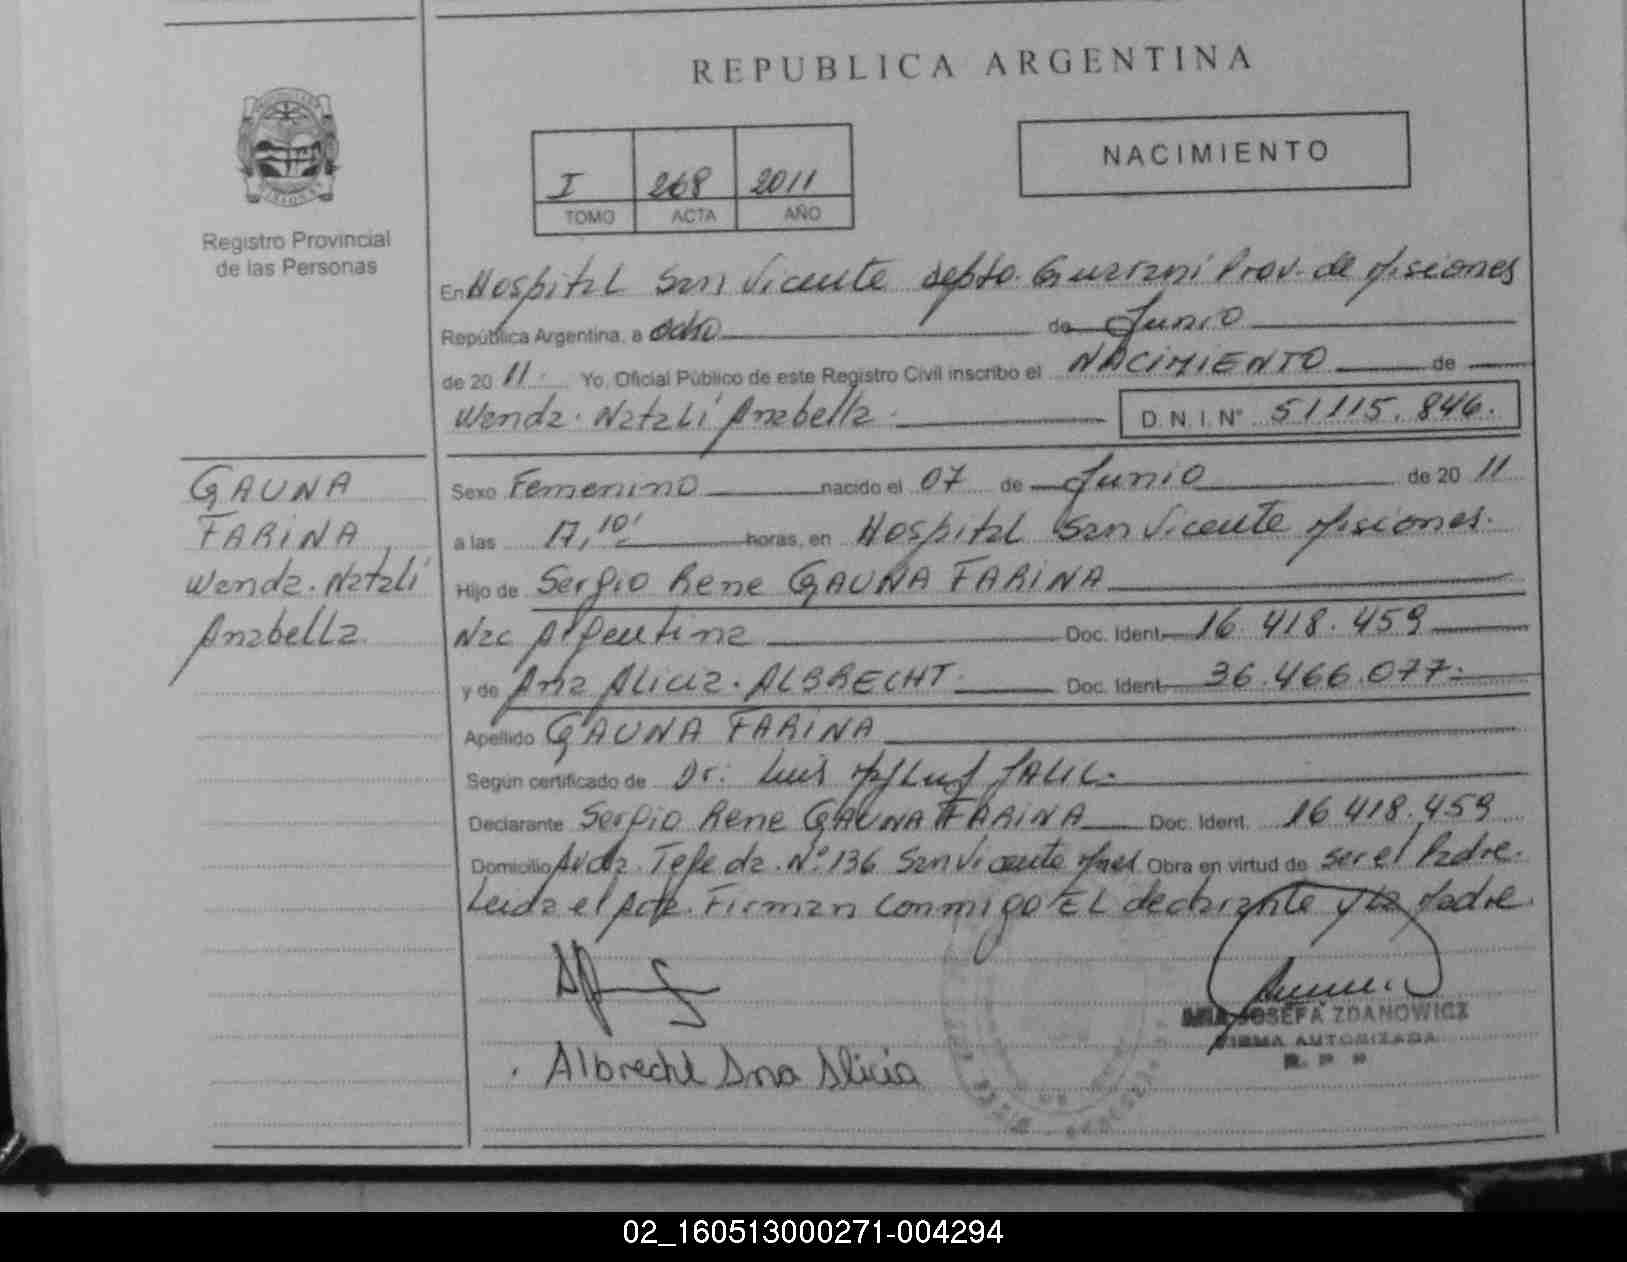 REPUBLICA ARGENTINA
NACIMIENTO
I 268 2011
TOMO ACTA AÑO
Registro Provincial
de las Personas
En Hospital San Vicente depto. Guarani Prov. de Misiones
República Argentina, a ocho de Junio
de 20 11. Yo, Oficial Público de este Registro Civil inscribo el NACIMIENTO de
Wenda. Natalí Anabella. D. N. I. Nº 51115.846.
GAUNA
FARINA
Wenda. Natalí
Anabella.
Sexo Femenino nacido el 07 de Junio de 20 11
a las 17,10' horas, en Hospital San Vicente Misiones.
Hijo de Sergio Rene GAUNA FARINA
Nac Argentina Doc. Ident. 16.418.459
y de Ana Alicia. ALBRECHT. Doc. Ident. 36.466.077.
Apellido GAUNA FARINA
Según certificado de Dr. Luis
Declarante Sergio Rene GAUNA FARINA Doc. Ident. 16 418.459
Domicilio Avda. Nº 136 San Vicente Mnes Obra en virtud de ser el Padre.
Leida el Acta. Firman conmigo EL declarante y la Madre.
Albrecht Ana Alicia
JOSEFA ZDANOWICZ
FIRMA AUTORIZADA
R. P. P
02_160513000271-004294